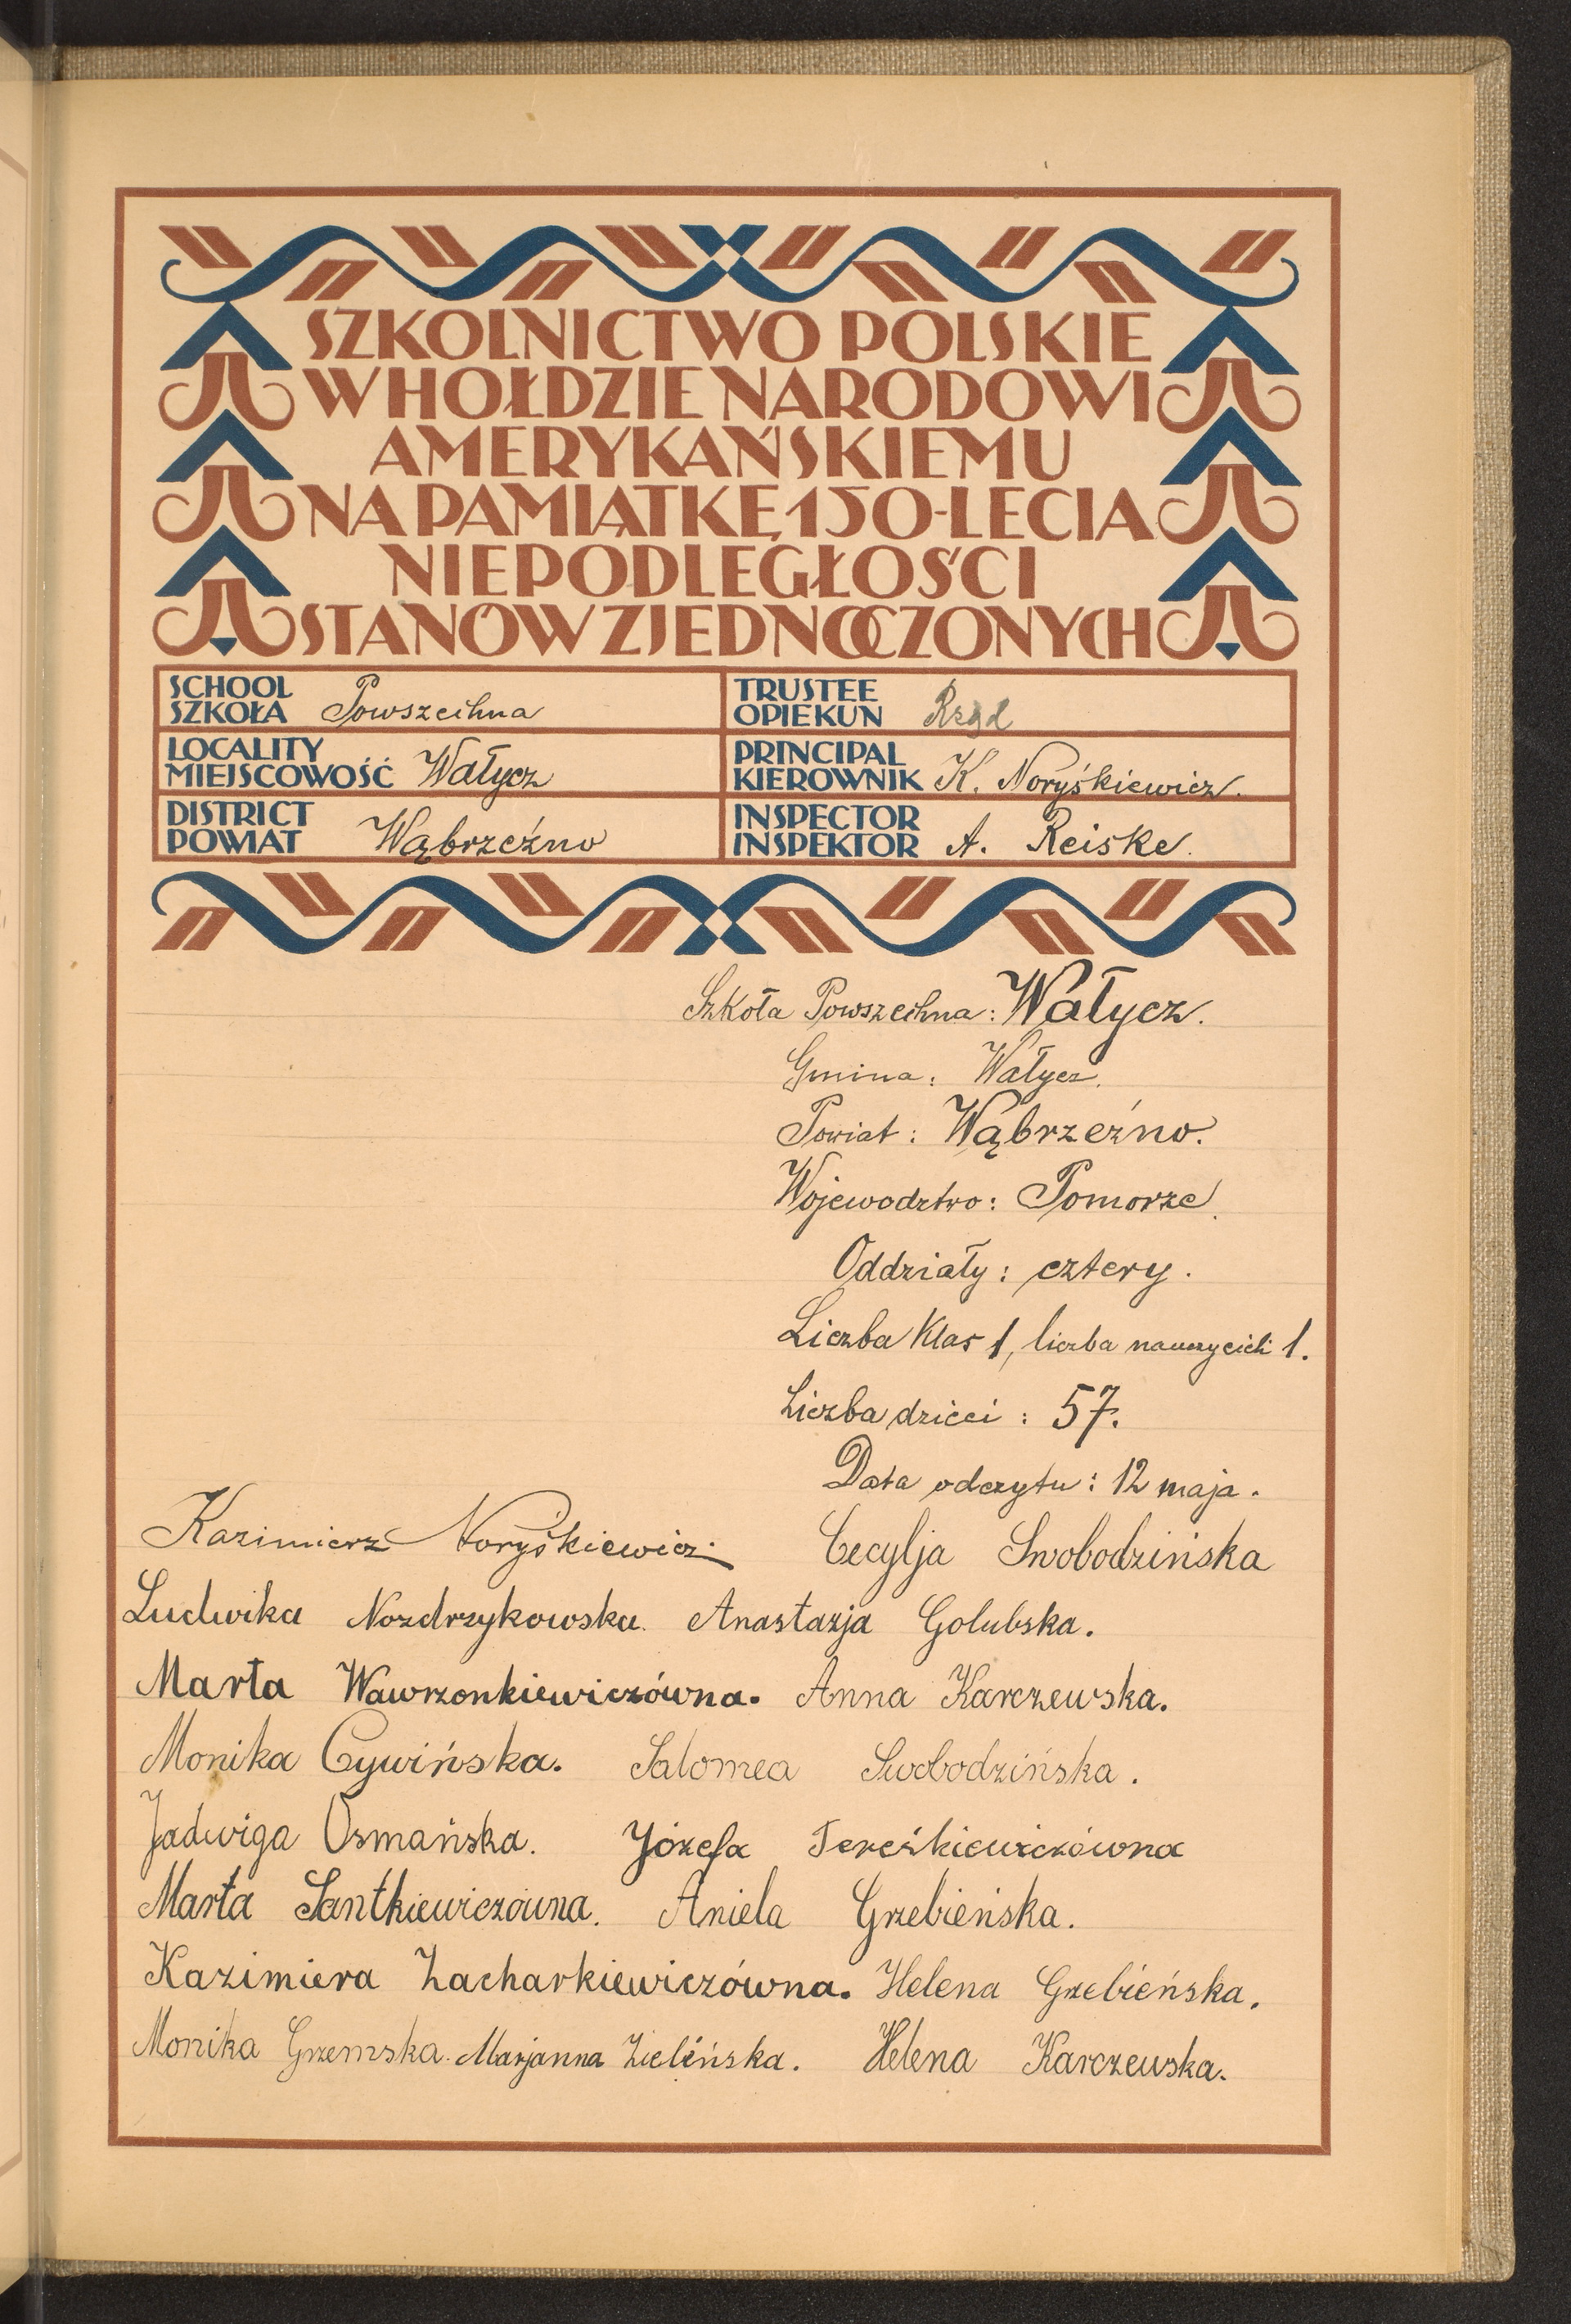 SZKOLNICTWO POLSKIE
W HOŁDZIE NARODOWI
AMERYKAŃSKIEMU
NA PAMIĄTKĘ 150-LECIA
NIEPODLEGŁOŚCI
STANÓW ZJEDNOCZONYCH
SCHOOL
SZKOŁA Powszechna
TRUSTEE
OPIEKUN Rząd
LOCALITY
MIEJSCOWOŚĆ Wałycz
PRINCIPAL
KIEROWNIK K. Noryśkiewicz.
DISTRICT
POWIAT Wąbrzeźno
INSPECTOR
INSPEKTOR A. Reiske.
Szkoła Powszechna: Wałycz.
Gmina: Wałycz.
Powiat: Wąbrzeźno.
Wojewodztwo: Pomorze.
Oddziały: cztery.
Liczba klas 1, liczba nauczycieli 1.
Liczba dzieci: 57.
Data odczytu: 12 maja.
Kazimierz Noryśkiewicz. Cecylja Swobodzińska
Ludwika Nozdrzykowska. Anastazja Golubska.
Marta Wawrzonkiewiczówna. Anna Karczewska.
Monika Cywińska. Salomea Swobodzińska.
Jadwiga Osmańska. Józefa Tereśkiewiczówna
Marta Santkiewiczówna. Aniela Grzebieńska.
Kazimiera Zacharkiewiczówna. Helena Grzebieńska.
Monika Grzemska. Marjanna Zielińska. Helena Karczewska.